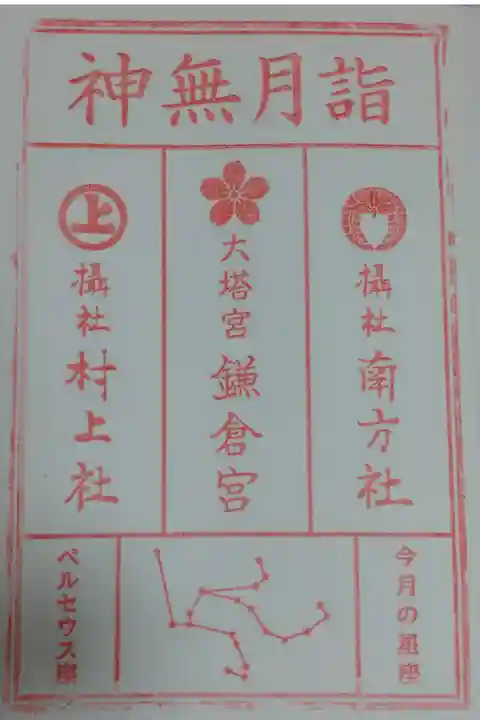 神無月詣
摂社 南方社
大塔宮 鎌倉宮
上
摂社 村上社
今月の星座
ペルセウス座